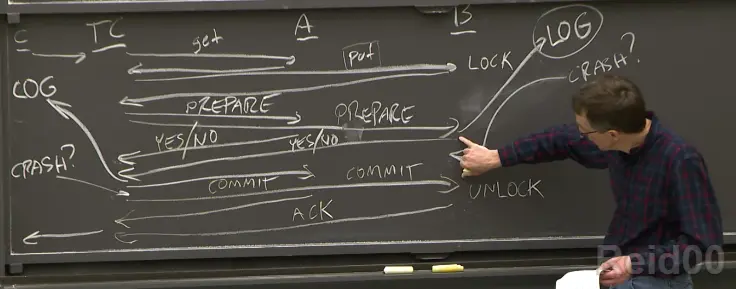 C TC A B
get
put
LOCK
LOG
CRASH?
LOG
PREPARE PREPARE
YES/NO YES/NO
CRASH?
COMMIT COMMIT
UNLOCK
ACK
Reid00